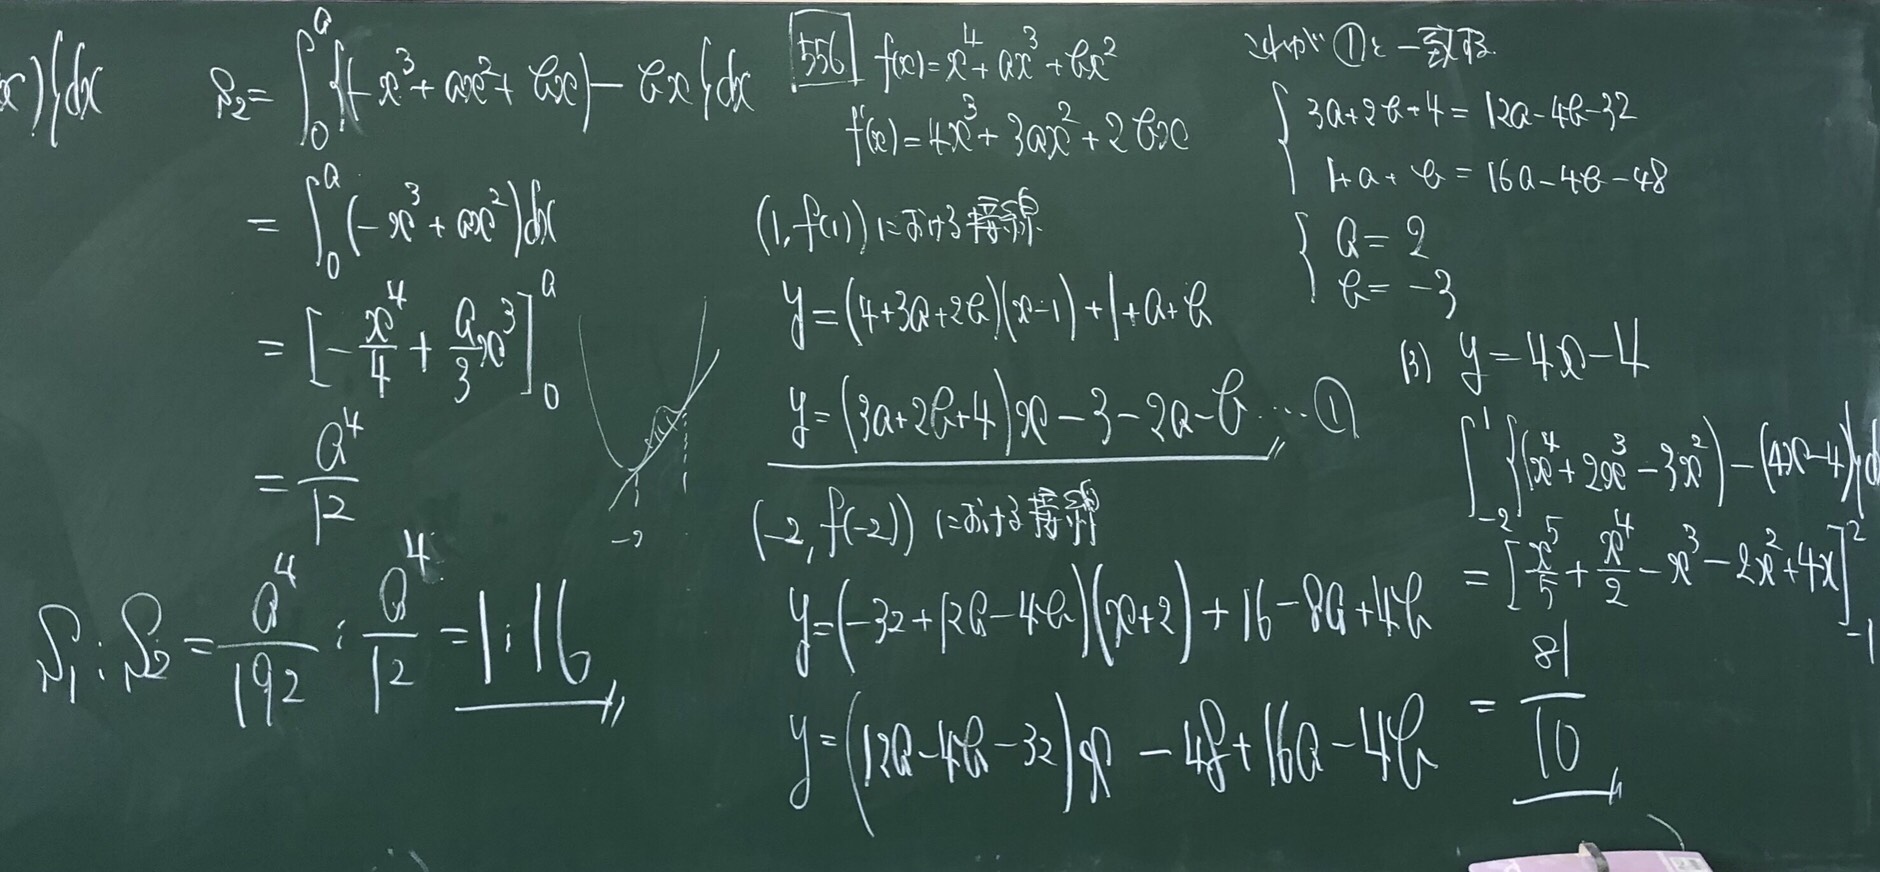 x)}dx
S₂= ∫₀ᵃ{(-x³+ax²+bx)-bx}dx
= ∫₀ᵃ(-x³+ax²)dx
= [-x⁴/4 + a/3 x³]₀ᵃ
= a⁴/12
S₁:S₂ = a⁴/192 : a⁴/12 = 1:16
-2
556 f(x)=x⁴+ax³+bx²
f'(x)=4x³+3ax²+2bx
(1, f(1))における接線
y=(4+3a+2b)(x-1)+1+a+b
y=(3a+2b+4)x-3-2a-b……①
(-2, f(-2))における接線
y=(-32+12a-4b)(x+2)+16-8a+4b
y=(12a-4b-32)x-48+16a-4b
これが①と一致する
{ 3a+2b+4=12a-4b-32
1+a+b=16a-4b-48
{ a=2
b=-3
(3) y=4x-4
∫₋₂¹{(x⁴+2x³-3x²)-(4x-4)}d
= [x⁵/5 + x⁴/2 - x³ - 2x² + 4x]₋₁²
= 81/10